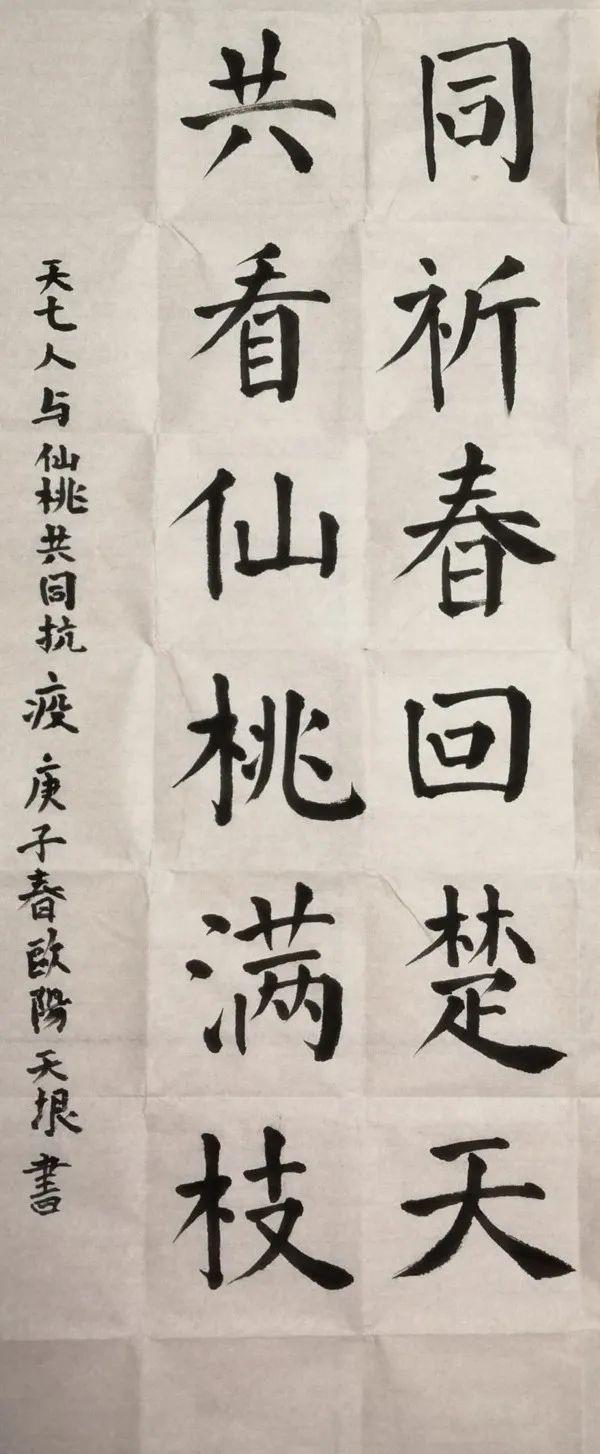 同祈春回楚天
共看仙桃满枝
天七人与仙桃共同抗疫庚子春欧陽天垠書